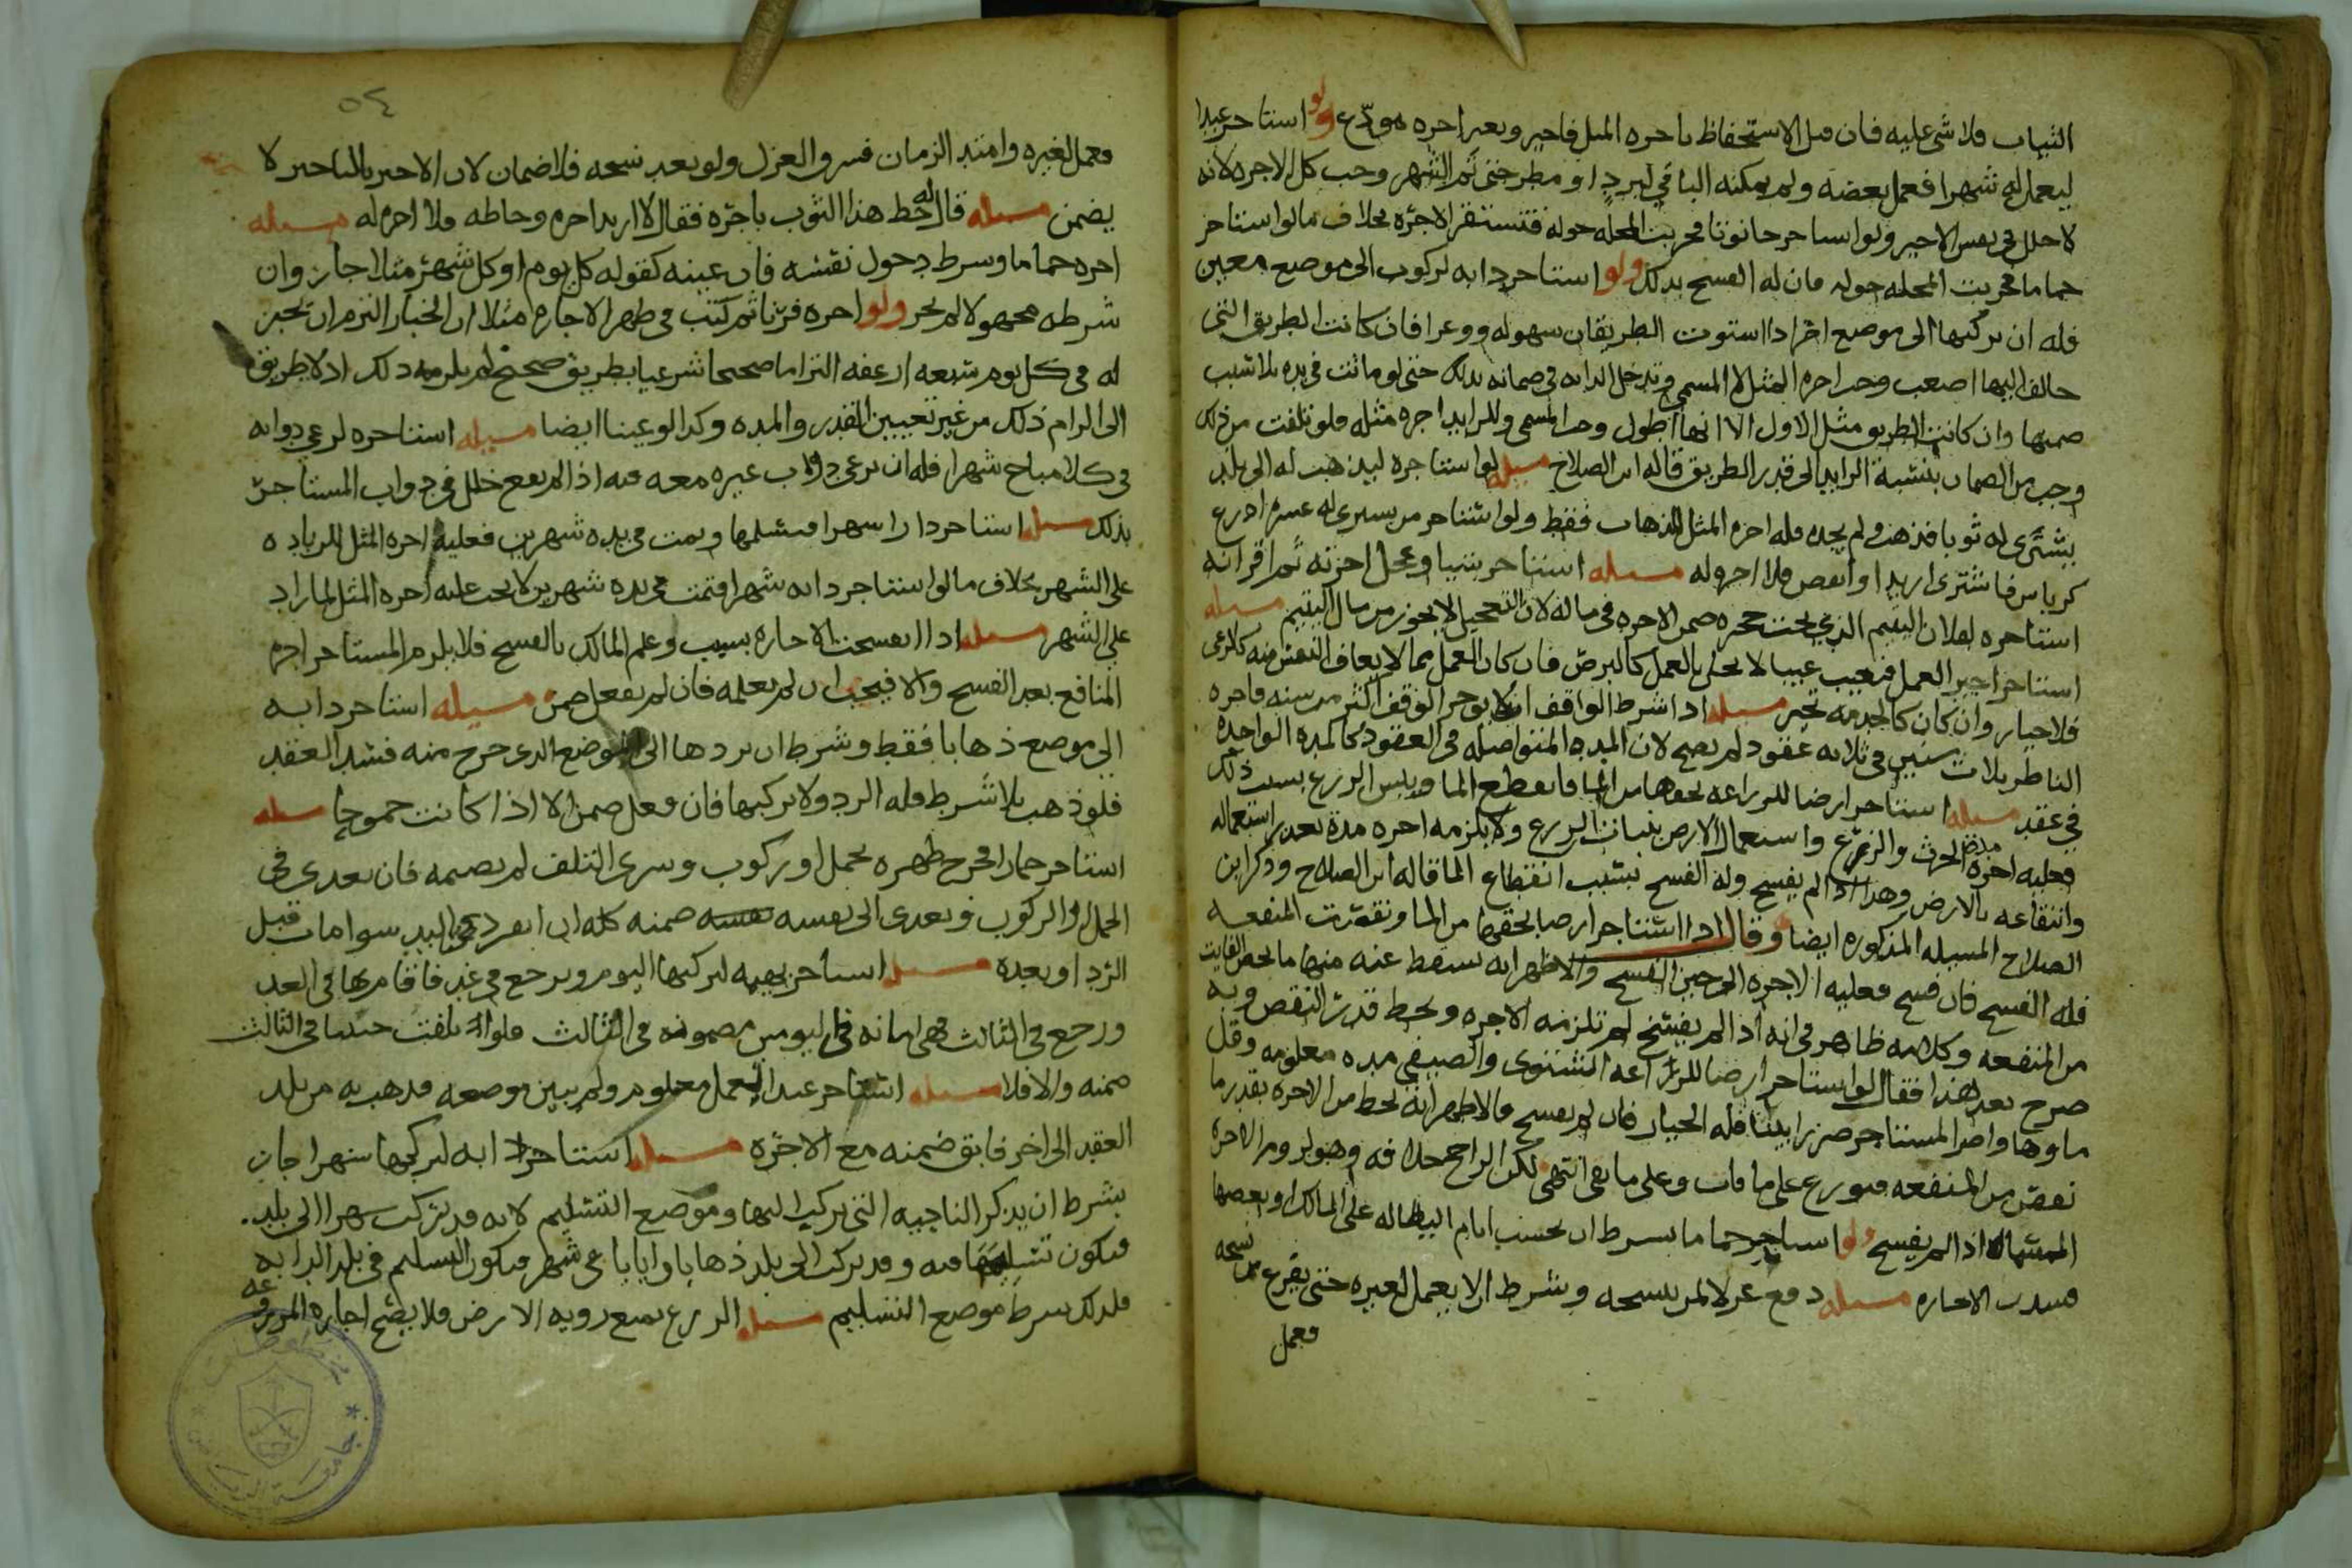 الثياب فلا شي عليه فان قبل الاستحفاظ باجره المثل فاجير وبغير اجره مودع ولو استاجر عبدا
ليعمل له شهرا فعمل بعضه ولم يمكنه الباقي لبرد او مطر حتى تم الشهر وجب كل الاجره لانه
لا خلل في نفس الاجير ولو استاجر حانوتا فخربت المحله حوله فتستقر الاجره بخلاف ما لو استاجر
حماما فخربت المحله حوله فان له الفسخ بذلك ولو استاجر دابه لركوب الى موضع معين
فله ان يركبها الى موضع اخر اذا استوت الطريقان سهوله ووعرا فان كانت الطريق التي
خالف اليها اصعب وجب اجره المثل لا المسمى وتدخل الدابه في ضمانه بذلك حتى لو ماتت في يده بلا سبب
ضمنها وان كانت الطريق مثل الاول الا انها اطول وجب المسمى وللزايد اجره مثله فلو تلفت من ذلك
وجب من الضمان بنسبة الزايد الى قدر الطريق قاله ابن الصلاح مسله لو استاجره ليذهب له الى بلد
يشتري له ثوبا فذهب ولم يجده فله اجره المثل للذهاب فقط ولو استاجر من يشتري له عشره اذرع
كرباس فاشترى ازيد او انقص فلا اجره له مسله استاجر شيئا وعجل اجرته ثم اقر انه
استاجره لفلان اليتيم الذي تحت حجره ضمن الاجره في ماله لان التعجيل لا يجوز من مال اليتيم مسله
استاجر اجير العمل فتعيب عيبا لا يخل بالعمل كالبرص فان كان العمل مما لا يعاف النفس منه كالرعي
فلا خيار وان كان كالخدمه تخير مسله اذا شرط الواقف ان لا يوجر الوقف اكثر من سنه فاجره
الناظر ثلاث سنين في ثلاثه عقود لم يصح لان المدة المتواصله في العقود كالمده الواحده
في عقد مسله استاجر ارضا للزراعه بحقها من الما فانقطع الما ويبس الزرع بسبب ذلك
فعليه اجره مده الحرث والزرع واستعمال الارض بنبات الزرع ولا يلزمه اجره مدة بعد استعماله
وانتفاعه بالارض وهذا اذا لم يفسخ وله الفسخ بسبب انقطاع الما قاله ابن الصلاح وذكر ابن
الصلاح المسيله المذكوره ايضا وقال اذا استاجر ارضا بحقها من الما وتعذرت المنفعه
فله الفسخ فان فسخ فعليه الاجره الى حين الفسخ والاظهر انه يسقط عنه منها ما يخص الفايت
من المنفعه وكلامه ظاهر في انه اذا لم يفسخ لم تلزمه الاجره ويحط قدر النقص وبه
صرح بعد هذا فقال لو استاجر ارضا للزراعه الشتوي والصيفي مده معلومه وقل
ماوها واضر المستاجر ضررا بينا فله الخيار فان لم يفسخ فالاظهر انه يحط من الاجره بقدر ما
نقص من المنفعه فيوزع على ما فات وعلى ما بقي انتهى لكن الراجح خلافه وهو لزوم الاجره
المسماه اذا لم يفسخ ولو استاجر حماما بشرط ان يحسب ايام البطاله على المالك او بعضها
فسدت الاجاره مسله دفع غزلا لمن ينسجه وشرط ان لا يعمل لغيره حتى يفرغ من نسجه
فعمل
٥٤
فعمل لغيره وامتد الزمان فسرق الغزل ولو بعد نسجه فلا ضمان لان الاجير بالتاخير لا
يضمن مسله قال له خط هذا الثوب باجره فقال لا اريد اجره وخاطه فلا اجره له مسله
اجره حماما وشرط دخول نفسه فان عينه كقوله كل يوم او كل شهر مثلا جاز وان
شرطه مجهولا لم يجز ولو اجره فرنا ثم كتب في ظهر الاجاره مثلا ان الخباز التزم ان يخبز
له في كل يوم سبعه ارغفه التزاما صحيحا شرعيا بطريق صحيح لم يلزمه ذلك اذ لا طريق
الى الزام ذلك من غير تعيين القدر والمده وكذا لو عينا ايضا مسيله استاجره لرعي دوابه
في كلا مباح شهرا فله ان يرعى دواب غيره معه فيه اذا لم يقع خلل في دواب المستاجر
بذلك مسله استاجر دارا شهرا فتسلمها وبقيت في يده شهرين فعليه اجره المثل للزياده
على الشهر بخلاف ما لو استاجر دابه شهرا فبقيت في يده شهرين لا يجب عليه اجره المثل لما زاد
على الشهر مسله اذا انفسخت الاجاره بسبب وعلم المالك بالفسخ فلا يلزم المستاجر اجره
المنافع بعد الفسخ والا فيجب ان لم يعلمه فان لم يفعل ضمن مسيله استاجر دابه
الى موضع ذهابا فقط وشرط ان يردها الى الموضع الذي خرج منه فسد العقد
فلو ذهب بلا شرط فله الرد ولا يركبها فان فعل ضمن الا اذا كانت جموحا مسله
استاجر حمارا فجرح ظهره بحمل او ركوب وسرى التلف لم يضمنه فان تعدى في
الحمل او الركوب وتعدى الى نفسه ضمنه كله ان انفرد في اليد سوا مات قبل
الرد او بعده مسله استاجر بهيمه ليركبها اليوم ويرجع في غد فاقام بها في الغد
ورجع في الثالث فهي امانه في اليومين مضمونه في الثالث فلو تلفت حينئذ في الثالث
ضمنه والا فلا مسله استاجر عبدا لعمل معلوم ولم يبين موضعه فذهب به من بلد
العقد الى اخر فابق ضمنه مع الاجره مسله استاجر دابه ليركبها شهرا جاز
بشرط ان يذكر الناحيه التي يركب اليها وموضع التسليم لانه قد يركب شهرا الى بلد
فيكون تسليمها فيه وقد يركب الى بلد ذهابا وايابا في شهر فيكون التسليم في بلد الدابه
فلذلك شرط موضع التسليم مسله الزرع يمنع رويه الارض فلا يصح اجاره المزروعه
جامعة الرياض